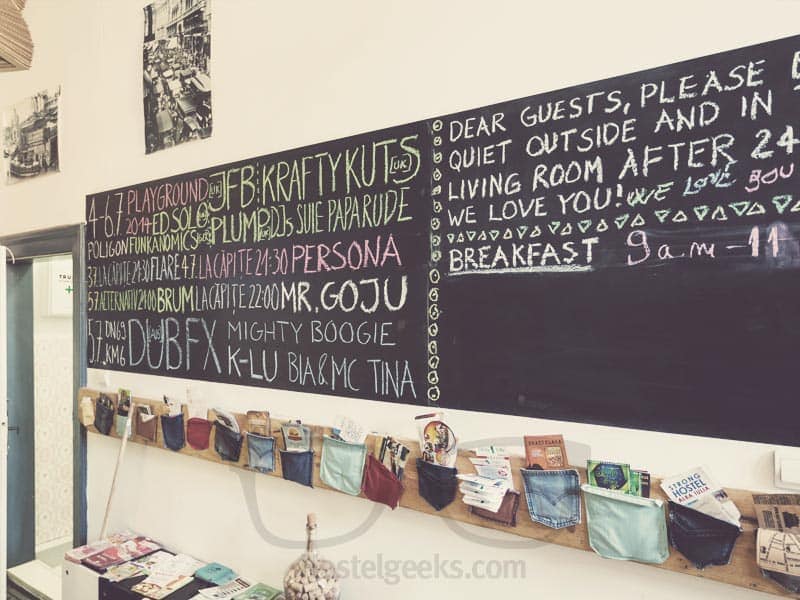 4-6.7 PLAYGROUND JFB UK KRAFTY KUTS UK
2014 ED SOLO PLUMP DJs SUIE PAPARUDE
POLIGON FUNKANOMICS
3.7 LA CAPITE 21:30 FLARE 4.7 LA CAPITE 21:30 PERSONA
5.7 ALTERNATIV 24:00 BRUM LA CAPIȚE 22:00 MR. GOJU
5.7 DN69 DUB FX MIGHTY BOOGIE
5.7 KM6 K-LU BIA & MC TINA
DEAR GUESTS, PLEASE
QUIET OUTSIDE AND IN
LIVING ROOM AFTER 24
WE LOVE YOU! WE LOVE YOU
BREAKFAST 9am-11
STRONG
HOSTEL
ALBA IULIA
hostelgeeks.com